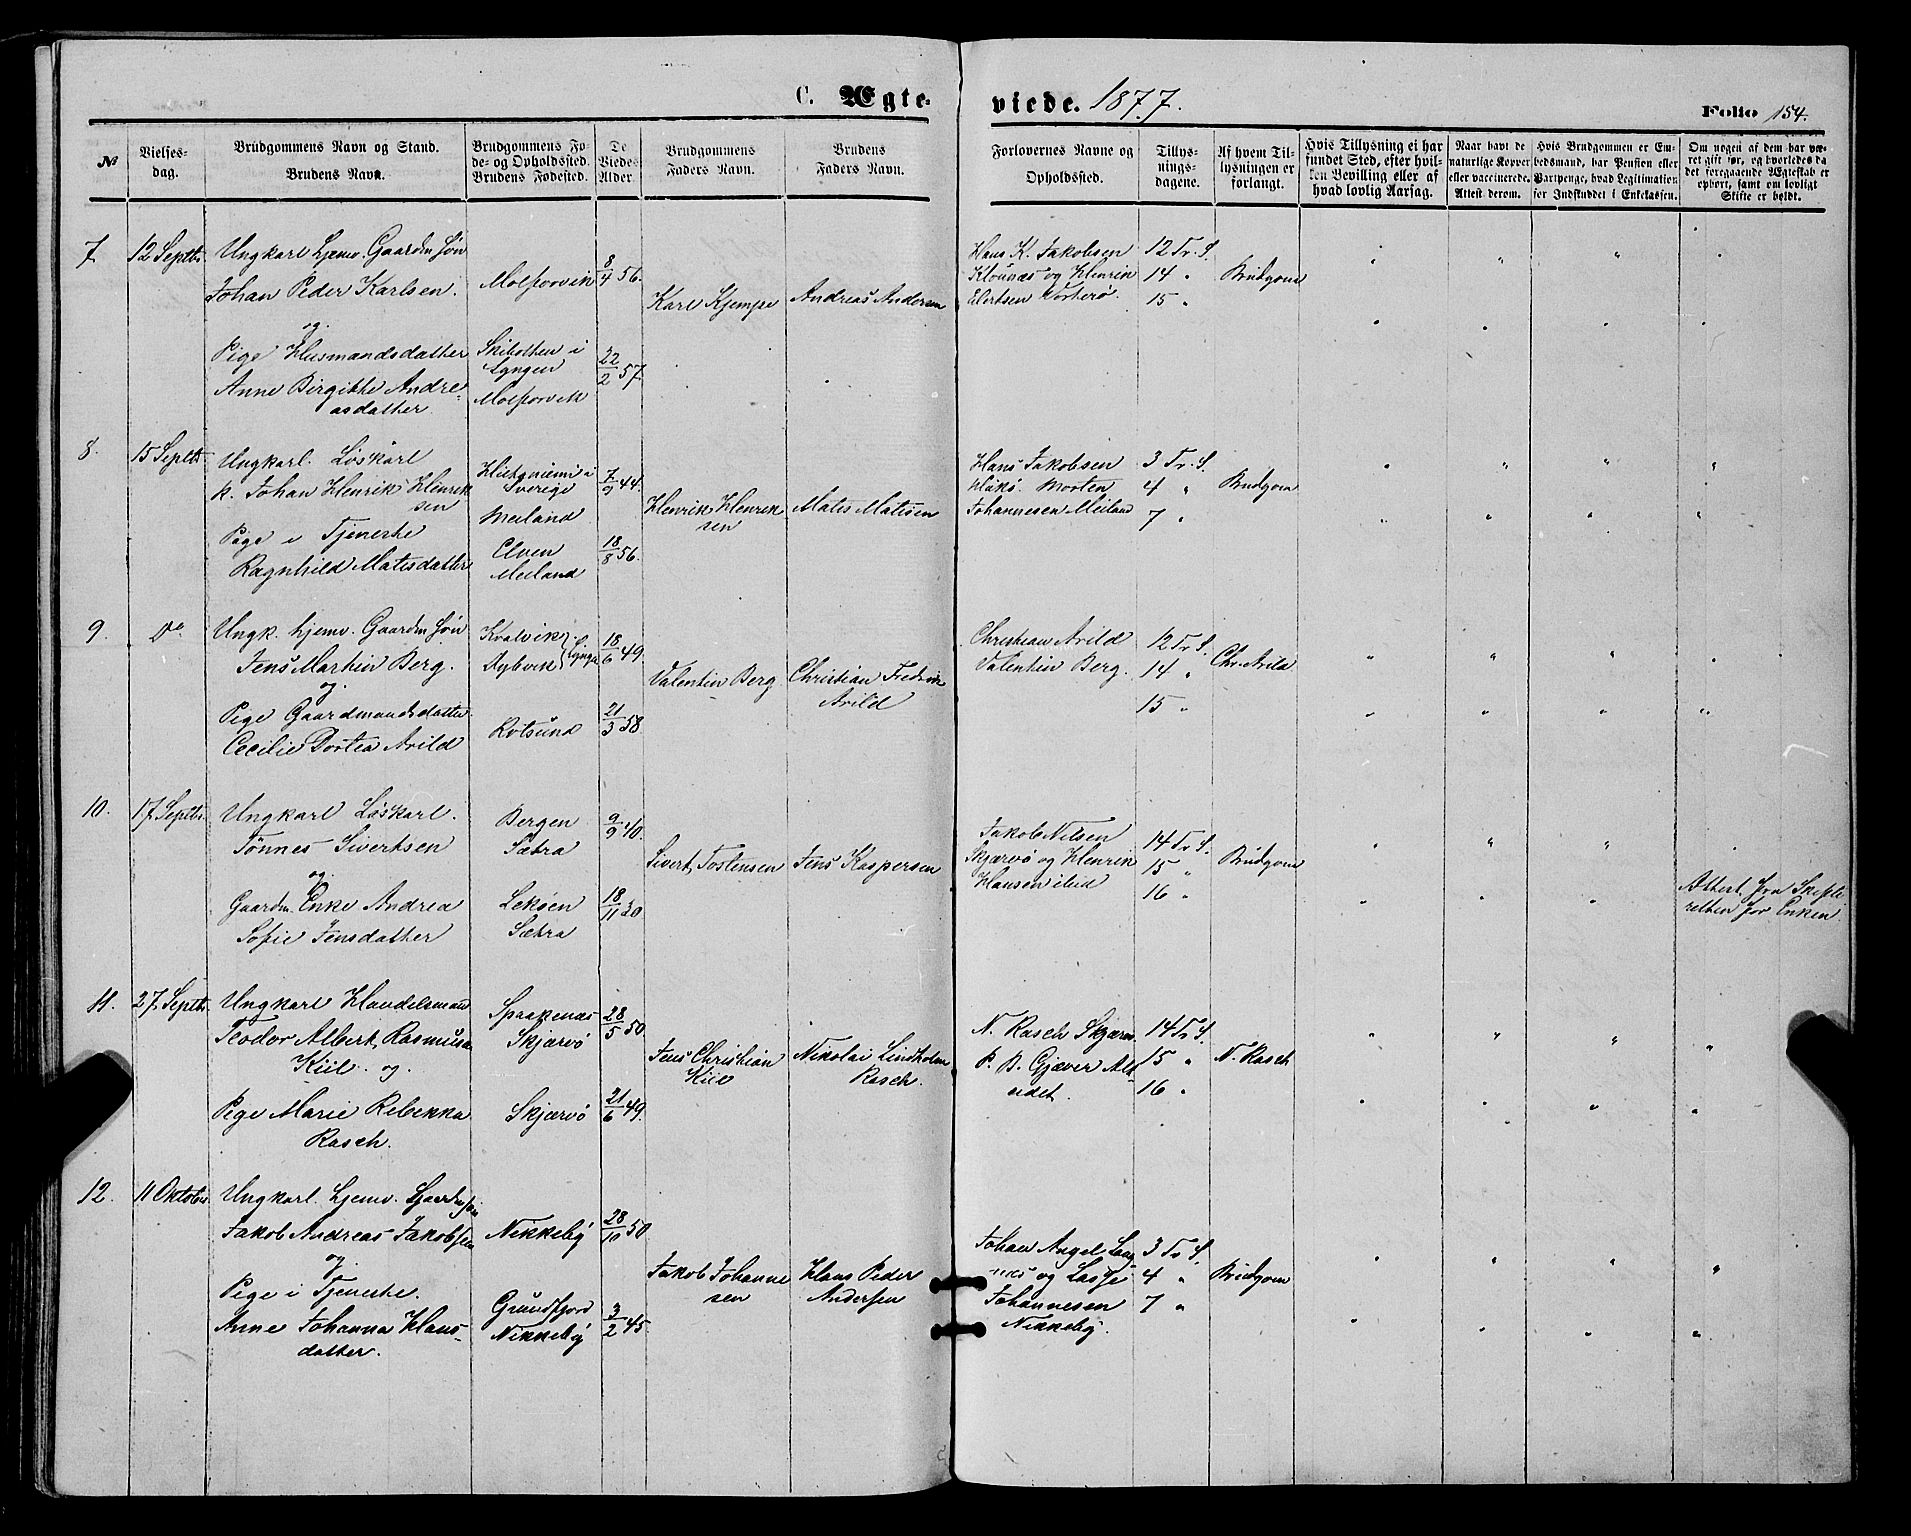 C. Ægte-
viede. 1877.
Folio 154.
№
Vielses-
dag.
Brudgommens Navn og Stand.
Brudens Navn.
Brudgommens Fø-
de- og Opholdssted.
Brudens Fødested.
De
Viedes
Alder.
Brudgommens
Faders Navn.
Brudens
Faders Navn.
Forlovernes Navne og
Opholdssted.
Tillys-
nings-
dagene.
Af hvem Til-
lysningen er
forlangt.
Hvis Tillysning ei har
fundet Sted, efter hvil-
ken Bevilling eller af
hvad lovlig Aarsag.
Naar havt de
naturlige Kopper
eller vaccinerede.
Attest derom.
Hvis Brudgommen er Em-
bedsmand, har Pension eller
Partpenge, hvad Legitimation
for Indskuddet i Enkekassen.
Om nogen af dem har væ-
ret gift før, og hvorledes da
det foregaaende Ægteskab er
ophørt, samt om lovligt
Skifte er holdt.
7
12 Septbr.
Ungkarl hjemv. Gaardm Søn
Johan Peder Karlsen.
og
Pige Husmandsdatter
Anne Birgithe Andre-
asdatter.
Molforvik
Skibotten i
Lyngen
Molforvik
8/4 56.
22/2 57.
Karl Kjempe
Andreas Andersen
Hans K. Jakobsen
Klounæs og Henrik
Elertsen Vorterø.
12 Tr. S.
14 "
15 "
Brudgom
8.
15 Septbr.
Ungkarl. Løskarl
k. Johan Henrik Henrik
sen
Pige i Tjeneste
Ragnhild Matisdatter
Hietaniemi i
Sverige
Meiland
Elven
Meiland
7/9 44.
18/8 56.
Henrik Henrik
sen
Mates Matisen
Hans Jakobsen
Morten
Johannesen Meiland
3 Tr. S.
4 "
7 "
Brudgom
9.
Do
Ungk. hjemv. Gaardm Søn
Jens Martin Berg.
og
Pige Gaardmandsdatter
Cecilie Dortea Arild
Kvalvik
Lyngen
Rotsund
18/6 49
21/3 58
Valentin Berg
Christian Fredrik
Arild
Christian Arild
Valentin Berg.
12 Tr. S.
14 "
15 "
Chr. Arild
10.
17 Septbr.
Ungkarl Løskarl.
Tønnes Sivertsen
og
Gaardm. Enke Andrea
Sofie Jensdatter
Bergen
Sætra
Leksen
Sætra
9/9 40.
18/11 30
Sivert Tostensen
Jens Kaspersen
Jakob Nilsen
Skjærvø og Henrik
Hansen ibid
14 Tr. S.
15 "
16 "
Brudgom
Attest fra Skifte-
retten for Enken
11.
27 Septbr.
Ungkarl Handelsmand
Teodor Albert Rasmus
Kiil. og.
Pige Marie Rebekka
Rasch.
Spraakenæs
Skjærvø
Skjærvø
28/5 50
21/6 49.
Jens Christian
Kiil
Nikolai Lindholm
Rasch.
N. Rasch Skjærvø
P. B. Gjæver Alt-
eidet.
14 Tr. S.
15 "
16 "
N. Rasch
12.
11 Oktober
Ungkarl. hjemv. Gaardm Søn
Jakob Andreas Jakobsen
og
Pige i Tjeneste.
Anne Johanna Hans-
datter.
Nikkeby
Grundfjord
Nikkeby
28/10 50
3/2 45.
Jakob Johanne
sen
Hans Peder
Andersen
Johan Angel Lang
næs og Lasse
Johannesen
Nikkeby.
3 Tr. S.
4 "
7 "
Brudgom